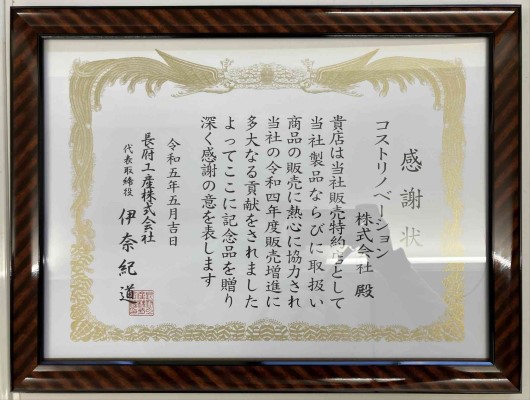 感謝状
コストリノベーション
株式会社 殿
貴店は当社販売特約店として
当社製品ならびに取扱い
商品の販売に熱心に協力され
当社の令和四年度販売増進に
多大なる貢献をされました
よってここに記念品を贈り
深く感謝の意を表します
令和五年五月吉日
長府工産株式会社
代表取締役 伊奈紀道